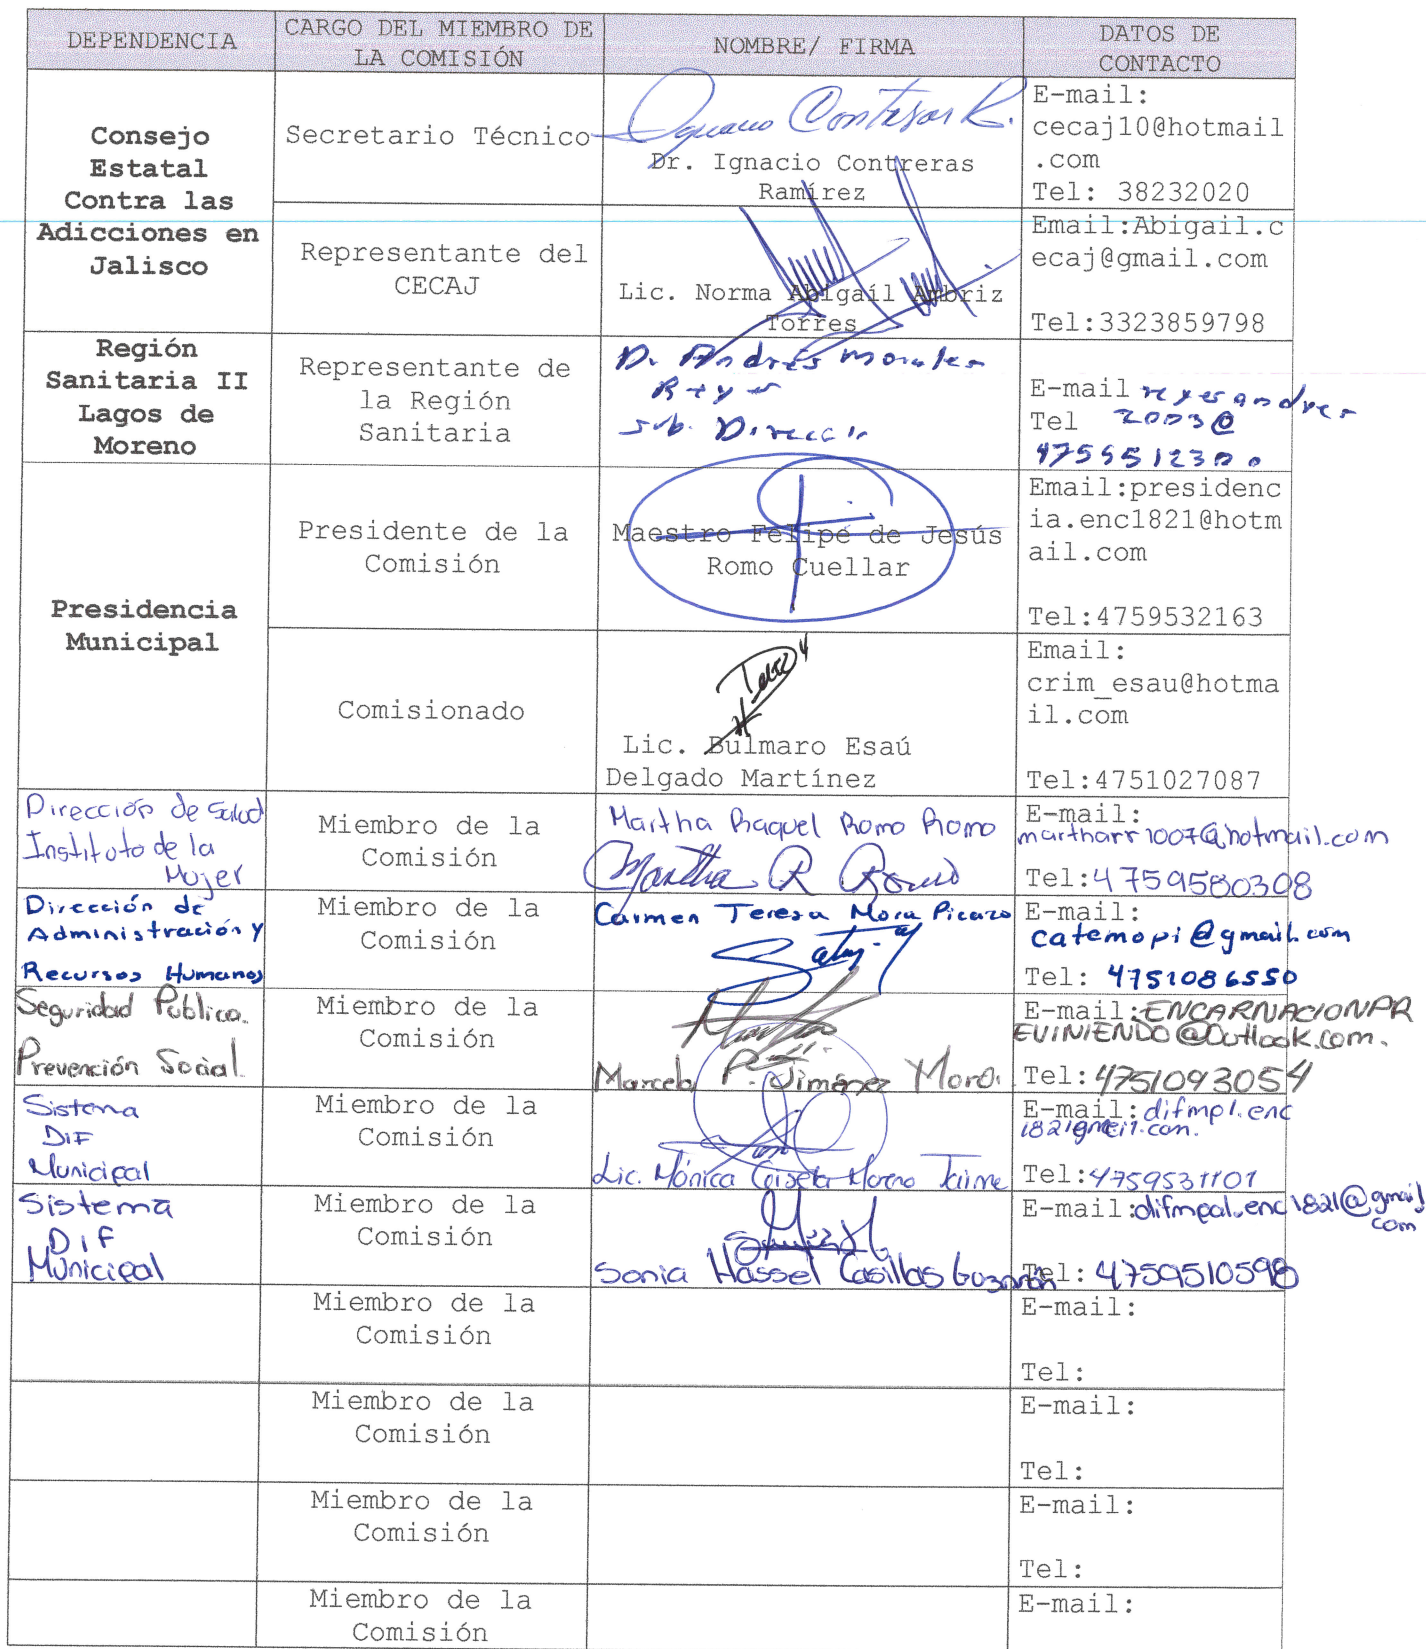 DEPENDENCIA
CARGO DEL MIEMBRO DE
LA COMISIÓN
NOMBRE/ FIRMA
DATOS DE
CONTACTO
Consejo
Estatal
Contra las
Adicciones en
Jalisco
Secretario Técnico
Dr. Ignacio Contreras
Ramírez
E-mail:
cecaj10@hotmail
.com
Tel: 38232020
Representante del
CECAJ
Lic. Norma Abigaíl Ambriz
Torres
Email:Abigail.c
ecaj@gmail.com
Tel:3323859798
Región
Sanitaria II
Lagos de
Moreno
Representante de
la Región
Sanitaria
D. Andrés Morales
Reyes
E-mail reyesandres
Tel 2003@
4759512300
Presidencia
Municipal
Presidente de la
Comisión
Maestro Felipe de Jesús
Romo Cuellar
Email:presidenc
ia.enc1821@hotm
ail.com
Tel:4759532163
Comisionado
Lic. Bulmaro Esaú
Delgado Martínez
Email:
crim_esau@hotma
il.com
Tel:4751027087
Dirección de Salud
Instituto de la
Mujer
Miembro de la
Comisión
Martha Raquel Romo Romo
Martha R Romo
E-mail:
martharr1007@hotmail.com
Tel:4759580308
Dirección de
Administración y
Recursos Humanos
Miembro de la
Comisión
Carmen Teresa Mora Picazo
E-mail:
catemopi@gmail.com
Tel: 4751086550
Seguridad Pública.
Prevención Social.
Miembro de la
Comisión
Marcela P. Jiménez Mora.
E-mail:ENCARNACIONPR
EVINIENDO@Outlook.com.
Tel:4751093054
Sistema
DIF
Municipal
Miembro de la
Comisión
Lic. Mónica Gisela Moreno Jaime
E-mail:difmpl.enc
1821gmeil.com.
Tel:4759531101
Sistema
DIF
Municipal
Miembro de la
Comisión
Sonia Hassel Casillas Guzmán
E-mail:difmpal.enc1821@gmail
com
Tel: 4759510598
Miembro de la
Comisión
E-mail:
Tel:
Miembro de la
Comisión
E-mail:
Tel:
Miembro de la
Comisión
E-mail:
Tel:
Miembro de la
Comisión
E-mail: